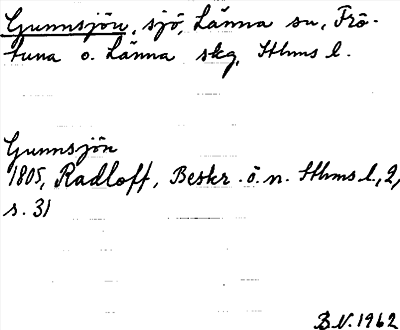 Gunnsjön, sjö, Länna sn, Frö-
tuna o. Länna skg, Sthms l.
Gunnsjön
1805, Radloff, Beskr. ö. n. Sthms l., 2,
s. 31
B.N. 1962